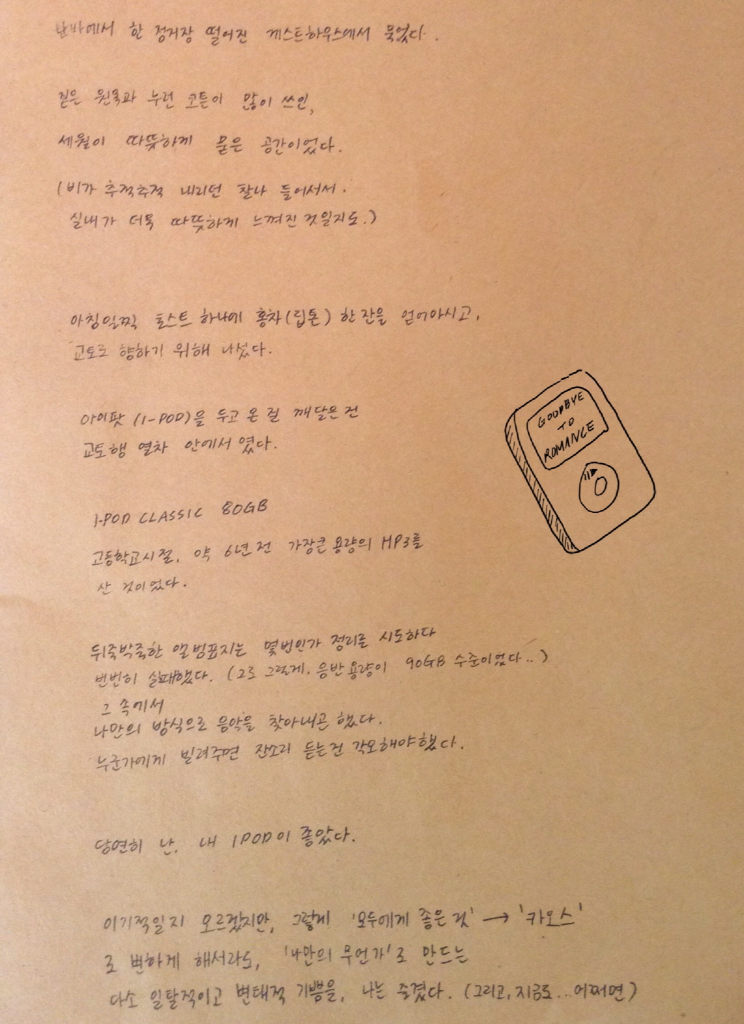 난바에서 한 정거장 떨어진 게스트하우스에서 묵었다.
짙은 원목과 누런 코튼이 많이 쓰인,
세월이 따뜻하게 묻은 공간이었다.
(비가 추적추적 내리던 찰나 들어서서.
실내가 더욱 따뜻하게 느껴진 것일지도.)
아침일찍 호스트 하나에 홍차(립톤) 한 잔을 얻어마시고,
교토로 향하기 위해 나섰다.
아이팟 (I-POD)을 두고 온 걸 깨달은 건
교토행 열차 안에서 였다.
I-POD CLASSIC 80GB
고등학교시절, 약 6년 전 가장큰 용량의 MP3를
산 것이었다.
뒤죽박죽한 앨범표지는 몇번인가 정리를 시도하다
번번히 실패했다. (고로 그럴게. 음반 용량이 90GB 수준이었다..)
그 속에서
나만의 방식으로 음악을 찾아내곤 했다.
누군가에게 빌려주면 잔소리 듣는건 각오해야했다.
당연히 난, 내 IPOD이 좋았다.
이기적일지 모르겠지만, 그렇게 '모두에게 좋은 것' → '카오스'
로 변하게 해서라도, '나만의 무언가'로 만드는
다소 일탈적이고 변태적 기쁨을, 나는 즐겼다. (그리고, 지금도... 어쩌면)
GOODBYE
TO
ROMANCE